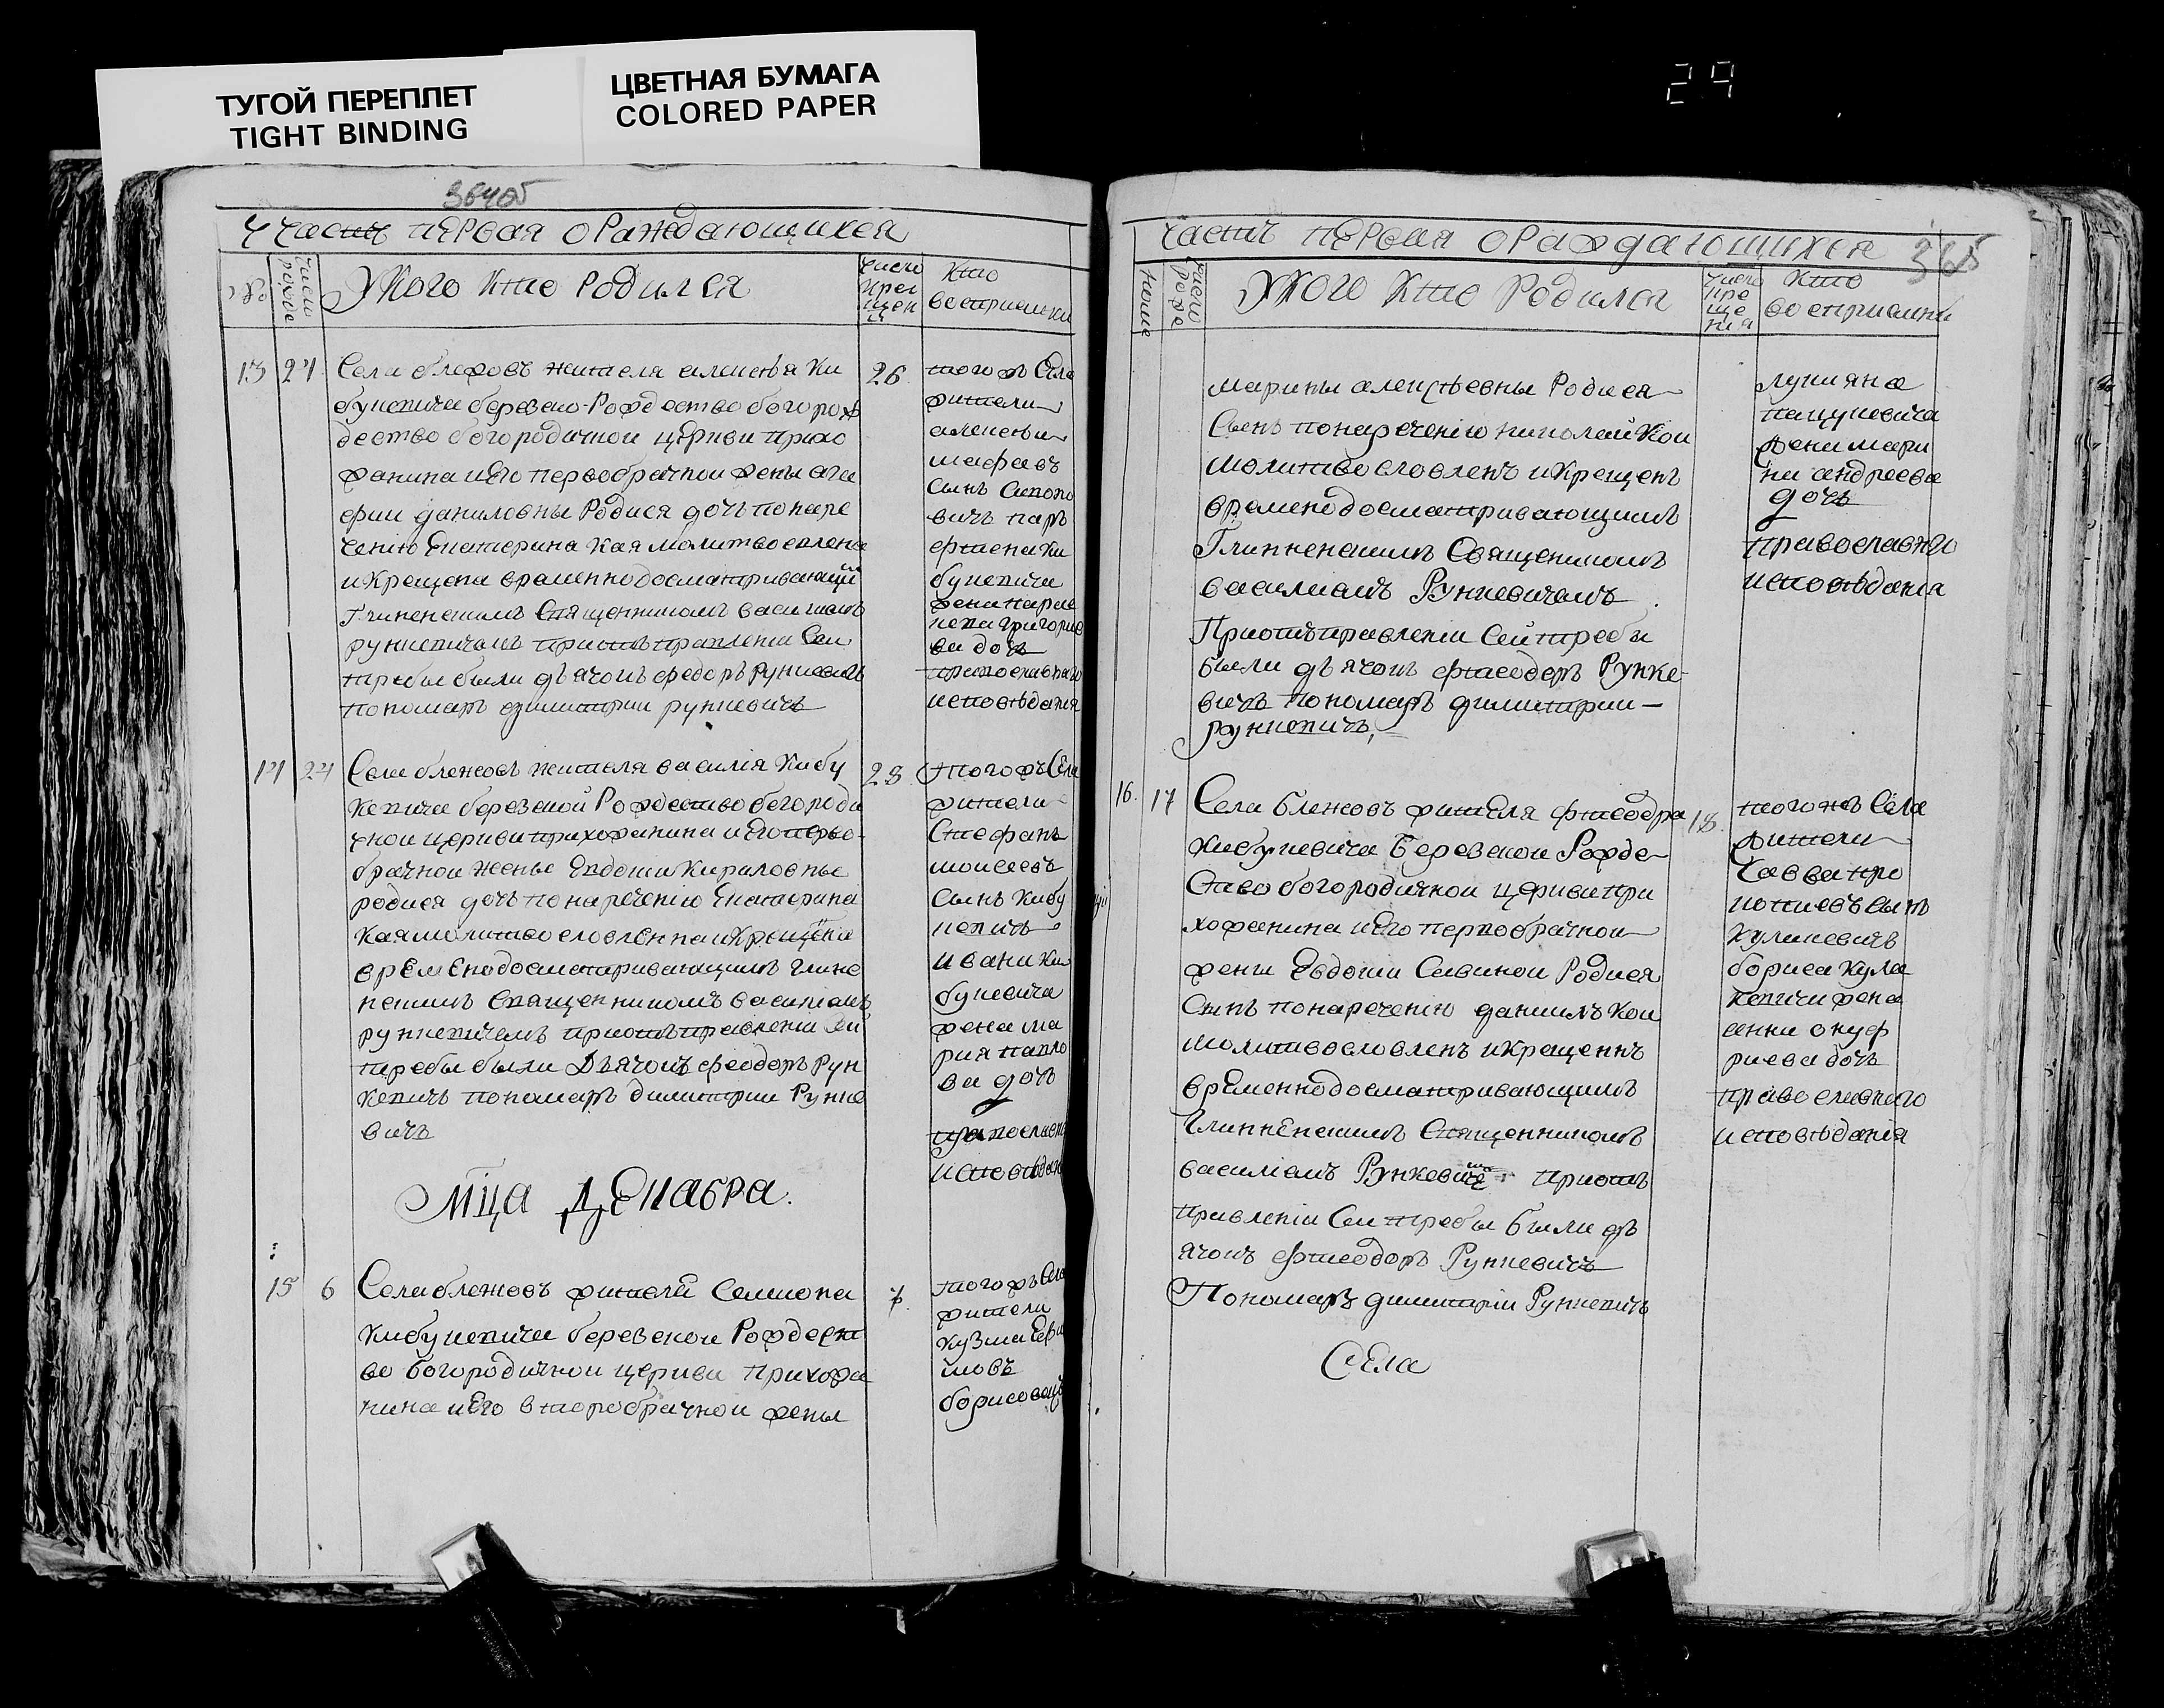 ТУГОЙ ПЕРЕПЛЕТ
TIGHT BINDING
ЦВЕТНАЯ БУМАГА
COLORED PAPER
29
364об
часть первая ораждающихся
№
число рожде
Укого кто Родился
число крещен
кто восприемники
13 24 Села блежовъ жителя алексѣя Ки
букевича березско-Рождество богорож
дество богородичной церкви прихо
жанина иЕго первобрачной жены ага
фии даниловны Родися дочь понаре
чению Екатерина кая молитвословлена
икрещена временнодосматривающий
Глинненскимъ Священникомъ василиемъ
рункевичемъ приотправлении Сей
требы были дьячокъ федоръ рункевичъ
пономарь димитрии рункевичъ
26
тогожъ Села
жители
алексѣи
сынъ
вичъ пар
фенаки
букевича
жена
григорие
ва дочь
православнаго
исповѣдания
14 24 Села блежовъ жителя василія Кибу
кевича березской Рождество богороди
чной церкви прихожанина иЕго перво-
брачной женые Евдокии Кириловные
родися дочь понаречению Екатерина
кая молитвословленна икрещена
временодосматривающимъ глине
нскимъ Священникомъ василиемъ
рункевичемъ приотправлении Сей
требы были Дьячокъ феодоръ Рун
кевичъ пономарь димитрии Рунке
вичъ
28
тогожъ Села
жители
Стефанъ
моисеевъ
Сынъ Кибу
кевичъ
ивана Ки
букевича
жена ма
рия павло
ва дочь
православ
исповѣдан
Мца Декабра.
15 6 Села блежовъ жителя Семиона
Кибукевича березской Рождест
во богородичной церкви прихожа
нина иЕго второбрачной жены
7
тогожъ Села
жители
кузма Ефи
мовъ
борисовецъ
часть первая ораждающихся
365
число рожде
Укого Кто Родился
число креще ния
кто восприемники
марины алексѣевны Родися
Сынъ понаречению николай Кои
Молитвословленъ икрещенъ
временодосматривающимъ
Глинненскимъ Священикомъ
василиамъ Рункевичамъ
Приотправлении Сей требы
были дьячокъ фтеодоръ Рунке-
вичъ пономарь димитрии
рункевичъ,
лукияна
пацукевича
жена мари
на андреева
дочь
православного
исповѣдания
16. 17 Села блежовъ жителя фтеодра
Кибукевича Березской Рожде
Ство богородичной церкви при
хожанина иЕго первобрачной
жены Евдокии Савиной Родися
Сынъ понаречению даниилъ Кои
Молитвословленъ икрещеннъ
временнодосматривающимъ
Глинненскимъ Священникомъ
василиамъ Рункевичемъ приот
правлении Сей требы были дь
ячокъ фтеодоръ Рункевичъ
Пономарь димитріи Рункевичъ
18.
тогожъ Села
жители
Савва про
копиевъ сынъ
кулакевичъ
бориса кула
кевича жена
анна онуф
риева дочь
православного
исповѣдания
Села